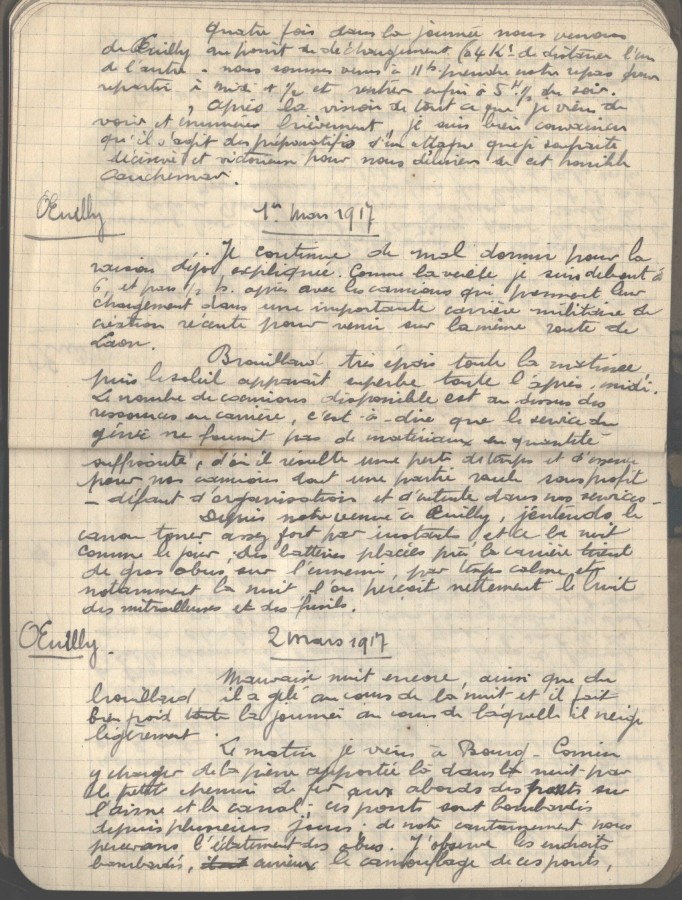 Quatre fois dans la journée nous venons
de Œuilly au point de déchargement (à 4 Kt de distance l'un
de l'autre - nous sommes venus à 11h prendre notre repas pour
repartir à midi ½ et rentrer enfin à 5h½ du soir.
après la vision de tout ce que je viens de
voir et énumérer brièvement je suis bien convaincu
qu'il s'agit des préparatifs d'un attaque que je souhaite
décisive et victorieuse pour nous délivrer de cet horrible
cauchemar.
Œuilly 1er Mars 1917
Je continue de mal dormir pour la
raison déjà expliquée. Comme la veille je suis debout à
6 et pars ½ h. après avec les camions qui prennent leur
chargement dans une importante carrière militaire de
création récente pour venir sur la même route de
Laon.
Brouillard très épais toute la matinée
puis le soleil apparait superbe toute l'après-midi.
Le nombre de camions disponible est au dessus des
ressources en carrière, c'est-à-dire que le service du
génie ne fournit pas de matériaux en quantité
suffisante, d'où il résulte une perte de temps et d'essence
pour nos camions dont une partie roule sans profit
- défaut d'organisation et d'entente dans nos services -
Depuis notre venue à Œuilly, j'entends le
canon tonner assez fort par instants et ce la nuit
comme le jour, des batteries placées près la carrière tirent
de gros obus sur l'ennemi, par temps calme et
notamment la nuit l'on perçoit nettement le bruit
des mitrailleuses et des fusils.
Œuilly - 2 mars 1917
Mauvaise nuit encore, ainsi que du
brouillard il a gelé au cours de la nuit et il fait
bien froid toute la journée au cours de laquelle il neige
légèrement.
Le matin je viens à Bourg-Comin
y charger de la pierre apportée là dans la nuit par
le petit chemin de fer aux abords des ponts sur
l'aisne et le canal; ces ponts sont bombardés
depuis plusieurs jours; de notre cantonnement nous
percevons l'éclatement des obus. J'observe les endroits
bombardés, le camouflage de ces ponts,